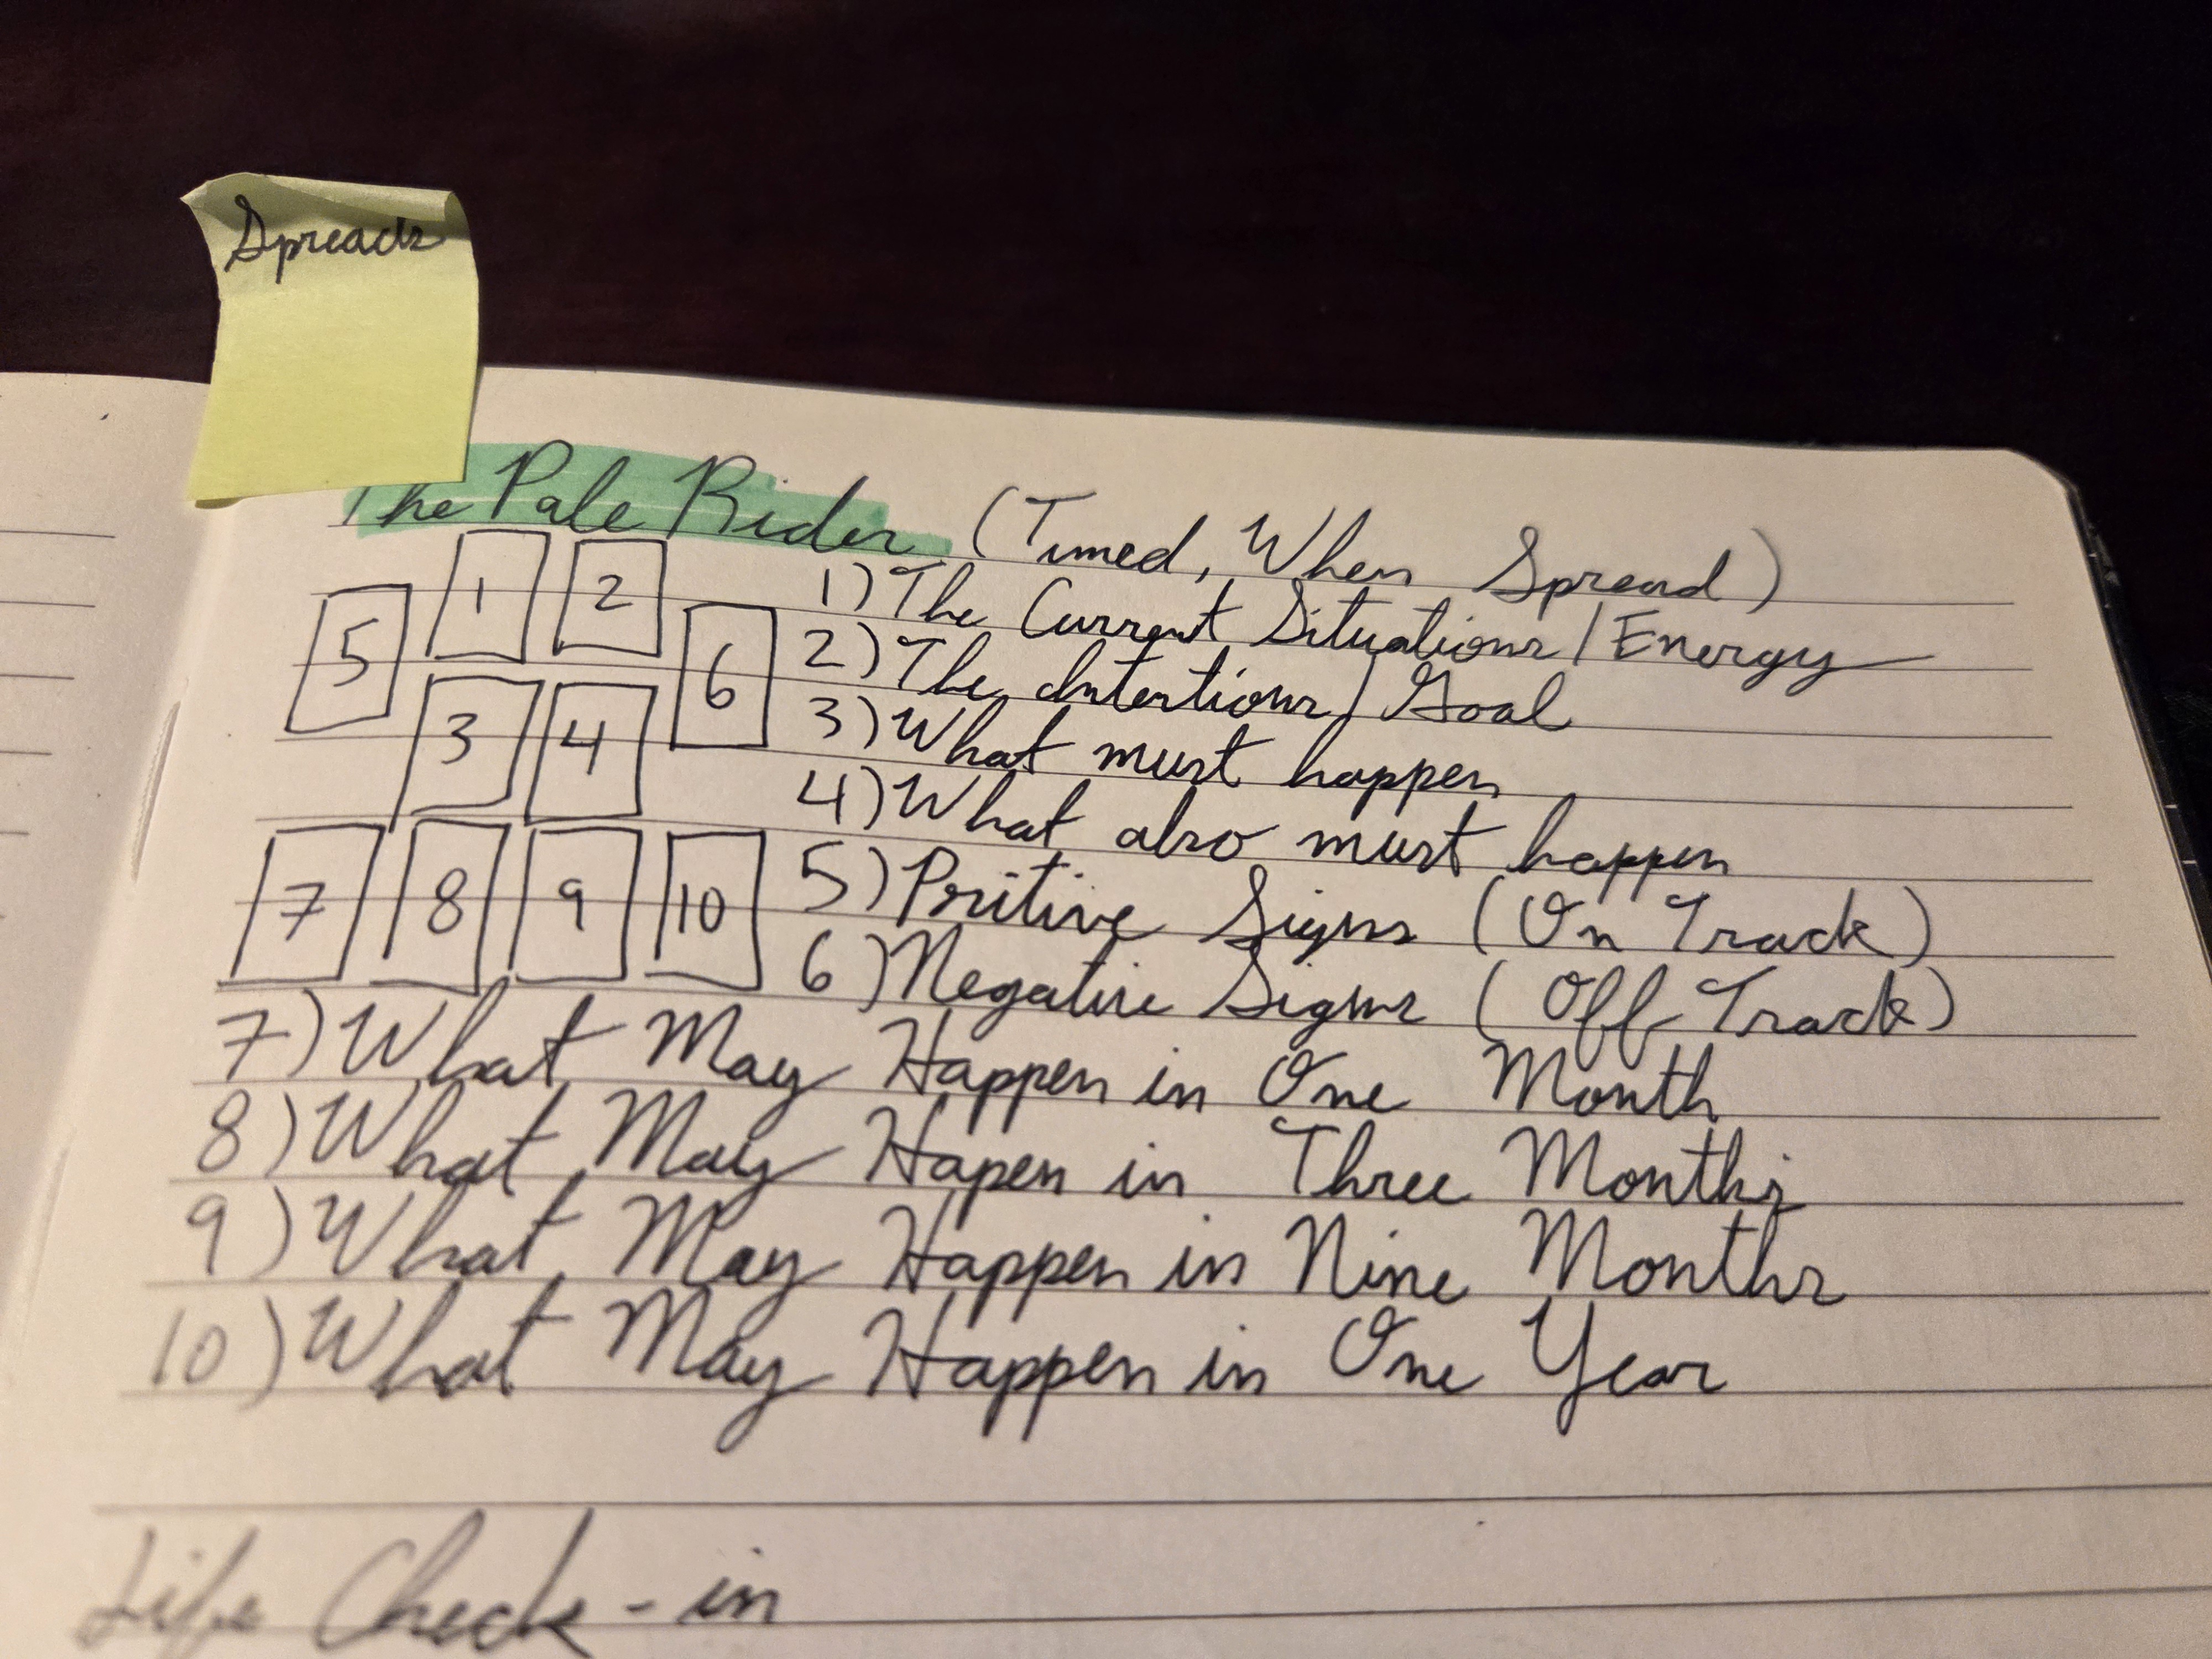 Spreads
The Pale Rider (Timed, When Spread)
1 2
5 6
3 4
7 8 9 10
1) The Current Situations/Energy
2) The Intentions/Goal
3) What must happen
4) What also must happen
5) Positive Signs (On Track)
6) Negative Signs (Off Track)
7) What May Happen in One Month
8) What May Hapen in Three Months
9) What May Happen in Nine Months
10) What May Happen in One Year
Life Check-in